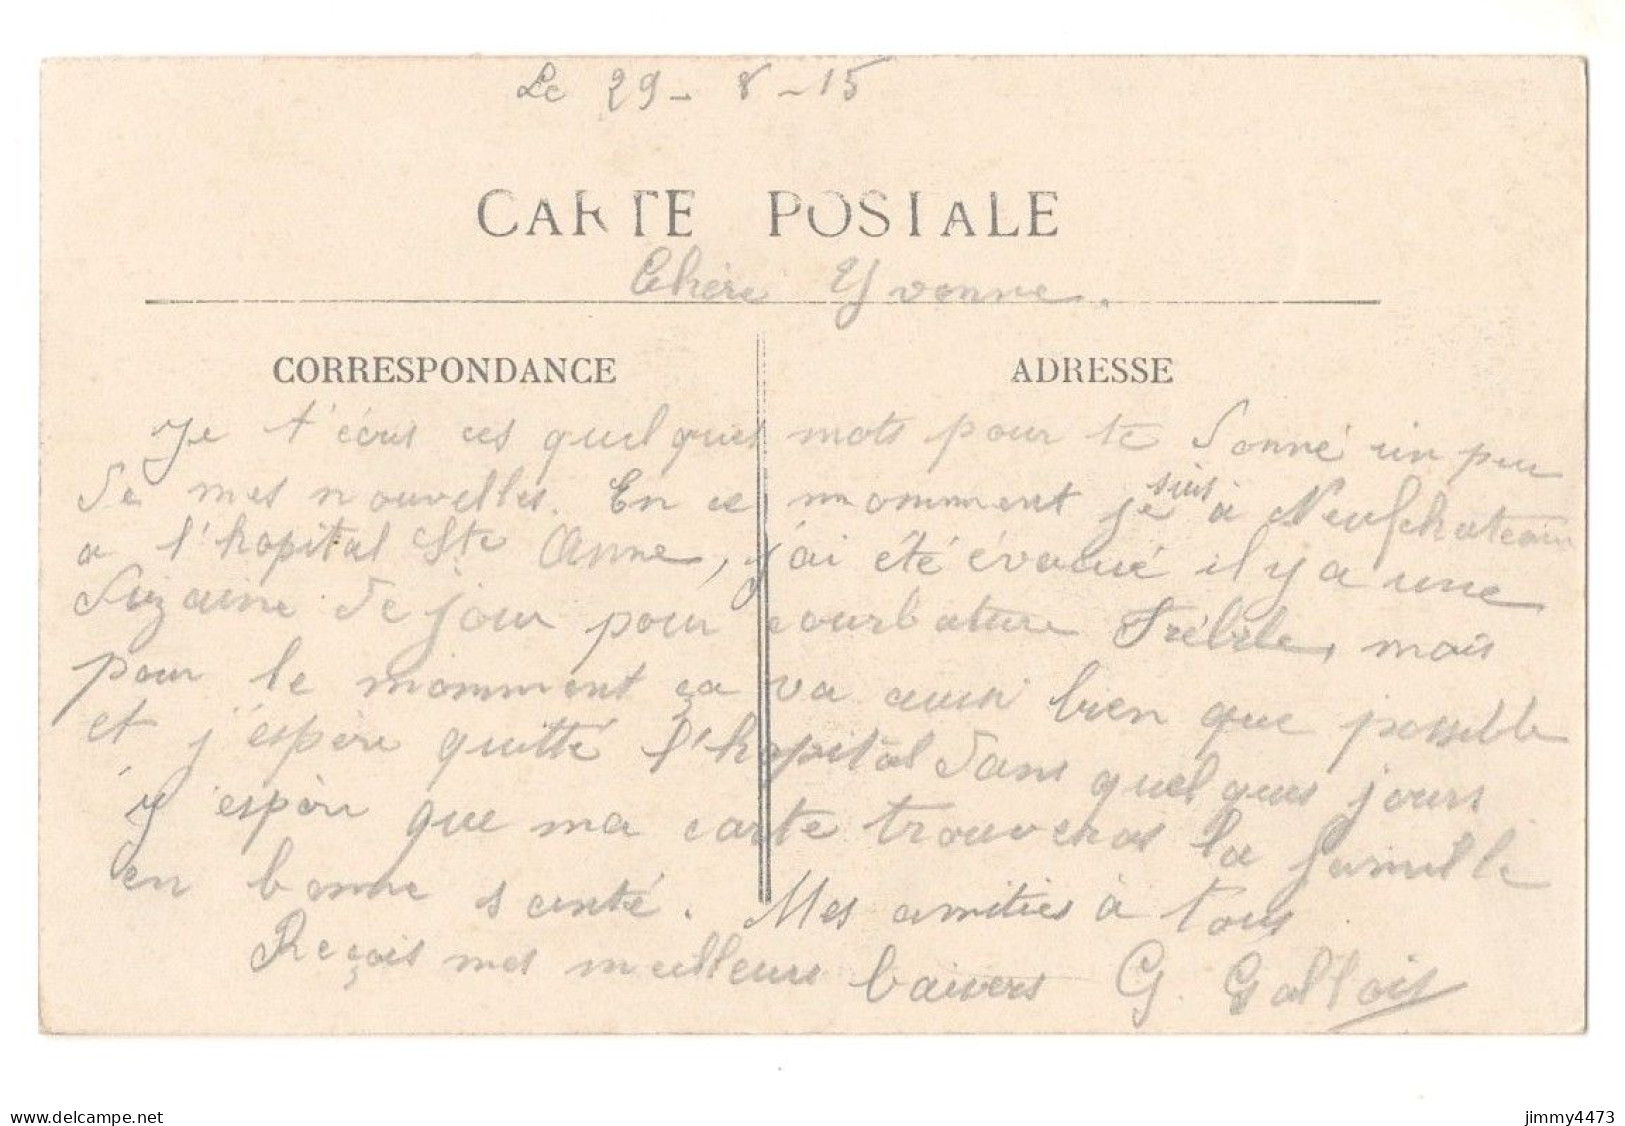 Le 29-8-15
CARTE POSTALE
Chère Yvonne.
CORRESPONDANCE
ADRESSE
Je t'écris ces quelques mots pour te donné un peu
de mes nouvelles. En ce momment je suis à Neufchateau
a l'hopital Ste Anne, j'ai été évacué il y a une
dizaine de jour pour courbature fébrile, mais
pour le momment ça va aussi bien que possible
et j'espère quitté l'hopital dans quelques jours
J'espère que ma carte trouveras la famille
en bonne santé. Mes amitiés à tous.
Reçois mes meilleurs baivers G. Gallois
www.delcampe.net
jimmy4473